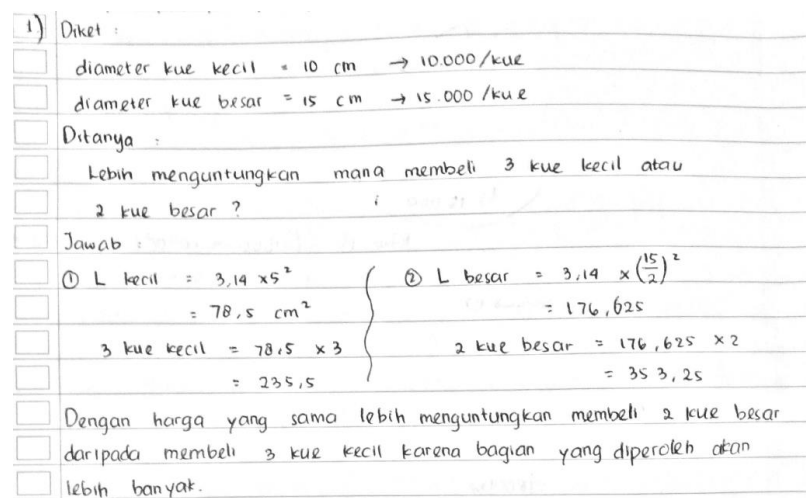 1) Diket :
diameter kue kecil = 10 cm → 10.000/kue
diameter kue besar = 15 cm → 15.000/kue
Ditanya :
Lebih menguntungkan mana membeli 3 kue kecil atau
2 kue besar ?
Jawab :
① L kecil = 3,14 x 5²
= 78,5 cm²
3 kue kecil = 78,5 x 3
= 235,5
② L besar = 3,14 x (15/2)²
= 176,625
2 kue besar = 176,625 x 2
= 353,25
Dengan harga yang sama lebih menguntungkan membeli 2 kue besar
daripada membeli 3 kue kecil karena bagian yang diperoleh akan
lebih banyak.